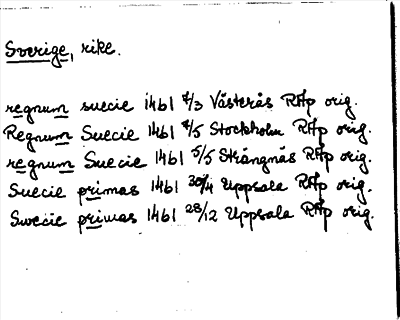 Sverige, rike.
regnum suecie 1461 2/3 Västerås RAp orig.
Regnum Suecie 1461 2/5 Stockholm RAp orig.
regnum Suecie 1461 5/5 Strängnäs RAp orig.
Suecie primas 1461 30/4 Uppsala RAp orig.
Swecie primas 1461 28/12 Uppsala RAp orig.